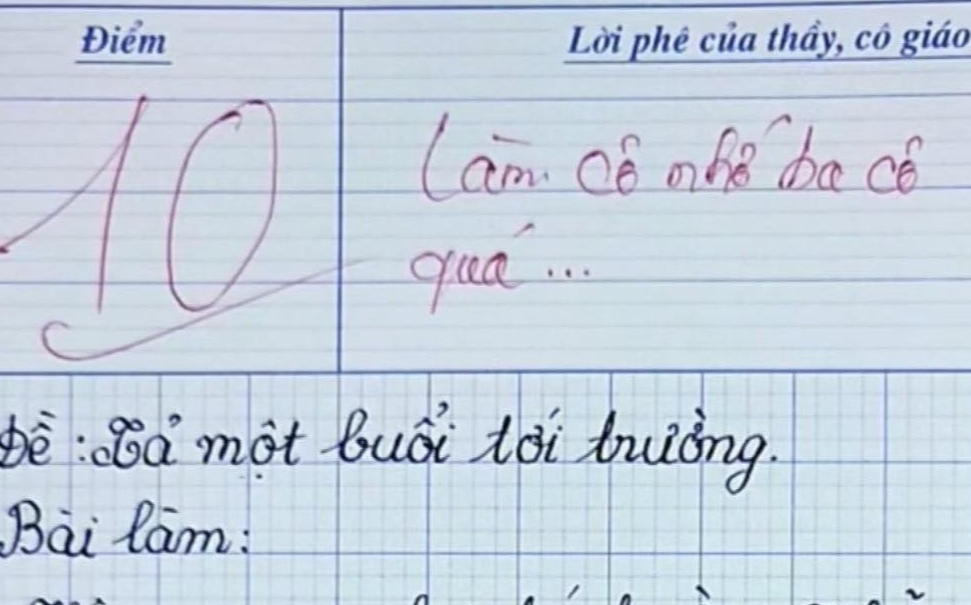 Điểm
Lời phê của thầy, cô giáo
10
Làm cô nhớ ba cô
quá ...
Đề : Tả một buổi tới trường.
Bài làm :